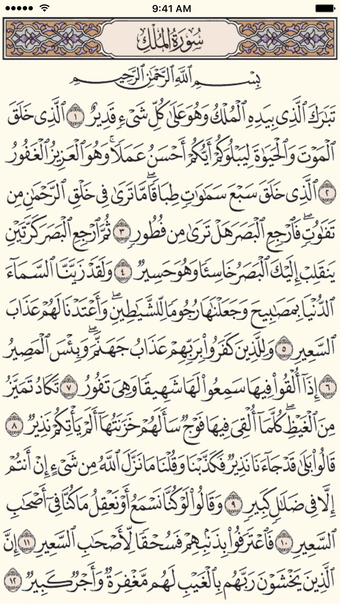 9:41 AM
سُورَةُ الْمُلْكِ
بِسْمِ اللَّهِ الرَّحْمَٰنِ الرَّحِيمِ
تَبَٰرَكَ الَّذِي بِيَدِهِ الْمُلْكُ وَهُوَ عَلَىٰ كُلِّ شَيْءٍ قَدِيرٌ ١ الَّذِي خَلَقَ
الْمَوْتَ وَالْحَيَوٰةَ لِيَبْلُوَكُمْ أَيُّكُمْ أَحْسَنُ عَمَلًا ۚ وَهُوَ الْعَزِيزُ الْغَفُورُ
٢ الَّذِي خَلَقَ سَبْعَ سَمَٰوَٰتٍ طِبَاقًا ۖ مَّا تَرَىٰ فِي خَلْقِ الرَّحْمَٰنِ مِن
تَفَٰوُتٍ ۖ فَارْجِعِ الْبَصَرَ هَلْ تَرَىٰ مِن فُطُورٍ ٣ ثُمَّ ارْجِعِ الْبَصَرَ كَرَّتَيْنِ
يَنقَلِبْ إِلَيْكَ الْبَصَرُ خَاسِئًا وَهُوَ حَسِيرٌ ٤ وَلَقَدْ زَيَّنَّا السَّمَاءَ
الدُّنْيَا بِمَصَٰبِيحَ وَجَعَلْنَٰهَا رُجُومًا لِّلشَّيَٰطِينِ ۖ وَأَعْتَدْنَا لَهُمْ عَذَابَ
السَّعِيرِ ٥ وَلِلَّذِينَ كَفَرُوا بِرَبِّهِمْ عَذَابُ جَهَنَّمَ ۖ وَبِئْسَ الْمَصِيرُ
٦ إِذَا أُلْقُوا فِيهَا سَمِعُوا لَهَا شَهِيقًا وَهِيَ تَفُورُ ٧ تَكَادُ تَمَيَّزُ
مِنَ الْغَيْظِ ۖ كُلَّمَا أُلْقِيَ فِيهَا فَوْجٌ سَأَلَهُمْ خَزَنَتُهَا أَلَمْ يَأْتِكُمْ نَذِيرٌ ٨
قَالُوا بَلَىٰ قَدْ جَاءَنَا نَذِيرٌ فَكَذَّبْنَا وَقُلْنَا مَا نَزَّلَ اللَّهُ مِن شَيْءٍ إِنْ أَنتُمْ
إِلَّا فِي ضَلَٰلٍ كَبِيرٍ ٩ وَقَالُوا لَوْ كُنَّا نَسْمَعُ أَوْ نَعْقِلُ مَا كُنَّا فِي أَصْحَٰبِ
السَّعِيرِ ١٠ فَاعْتَرَفُوا بِذَنبِهِمْ فَسُحْقًا لِّأَصْحَٰبِ السَّعِيرِ ١١ إِنَّ
الَّذِينَ يَخْشَوْنَ رَبَّهُم بِالْغَيْبِ لَهُم مَّغْفِرَةٌ وَأَجْرٌ كَبِيرٌ ١٢